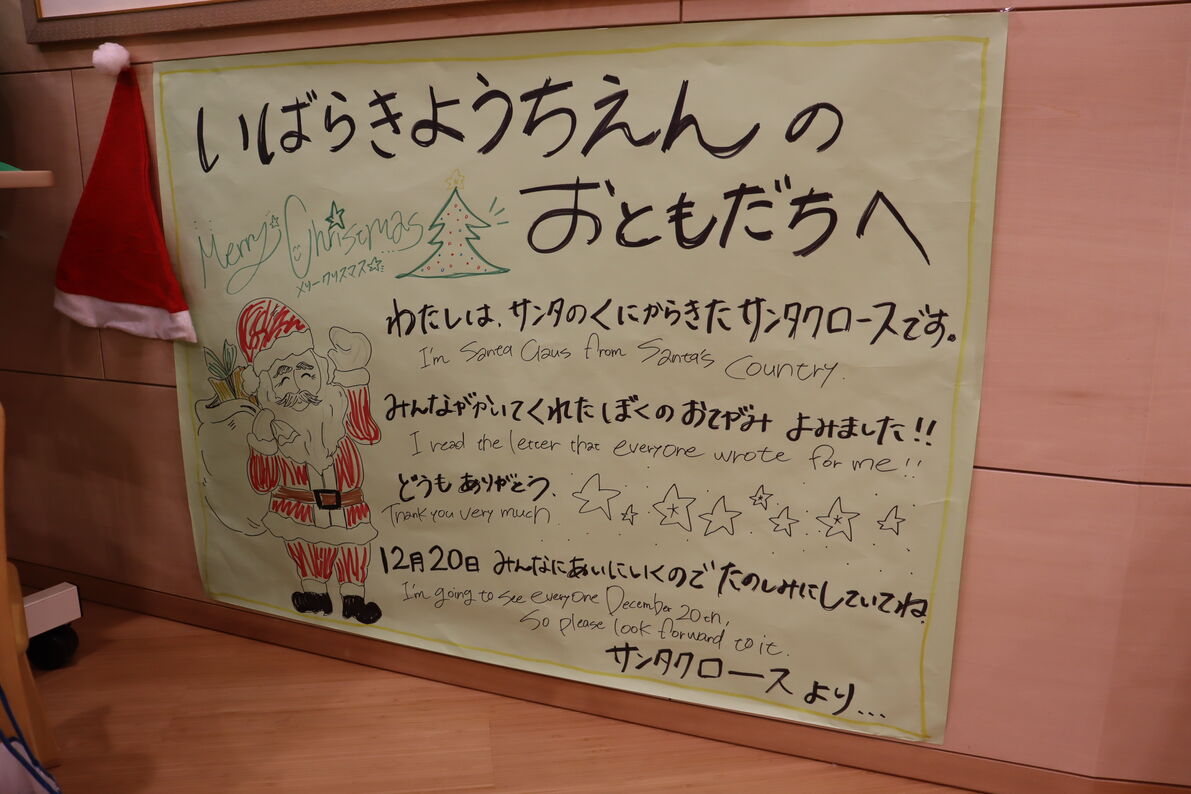 いばらきようちえんの
おともだちへ
Merry Christmas
メリークリスマス
わたしは、サンタのくにからきたサンタクロースです。
I'm Santa Claus from Santa's Country.
みんながかいてくれたぼくのおてがみ よみました!!
I read the letter that everyone wrote for me!!
どうもありがとう、
Thank you very much
12月20日 みんなにあいにいくのでたのしみにしていてね
I'm going to see everyone December 20th,
So please look forward to it.
サンタクロースより...